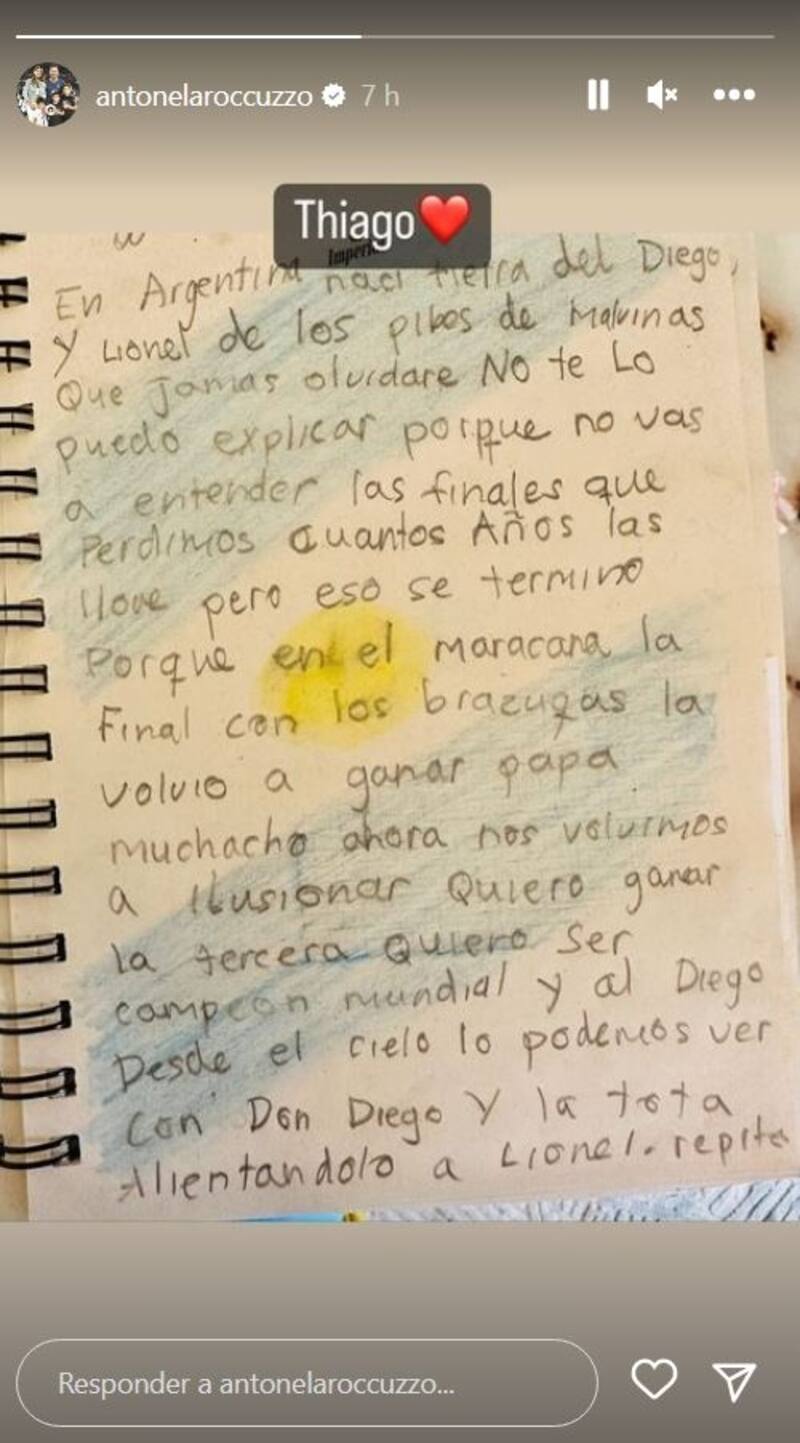 antonelaroccuzzo 7 h
Thiago
En Argentina naci tierra del Diego,
y Lionel de los pibes de Malvinas
Que jamas olvidare NO te Lo
puedo explicar porque no vas
a entender las finales que
Perdimos cuantos Años las
llove pero eso se termino
Porque en el maracana la
Final con los brazugas la
volvio a ganar papa
muchacho ahora nos volvimos
a Ilusionar Quiero ganar
la tercera Quiero ser
campeon mundial y al Diego
Desde el cielo lo podemos ver
Con Don Diego Y la tota
Alientandolo a Lionel. repita
Responder a antonelaroccuzzo...